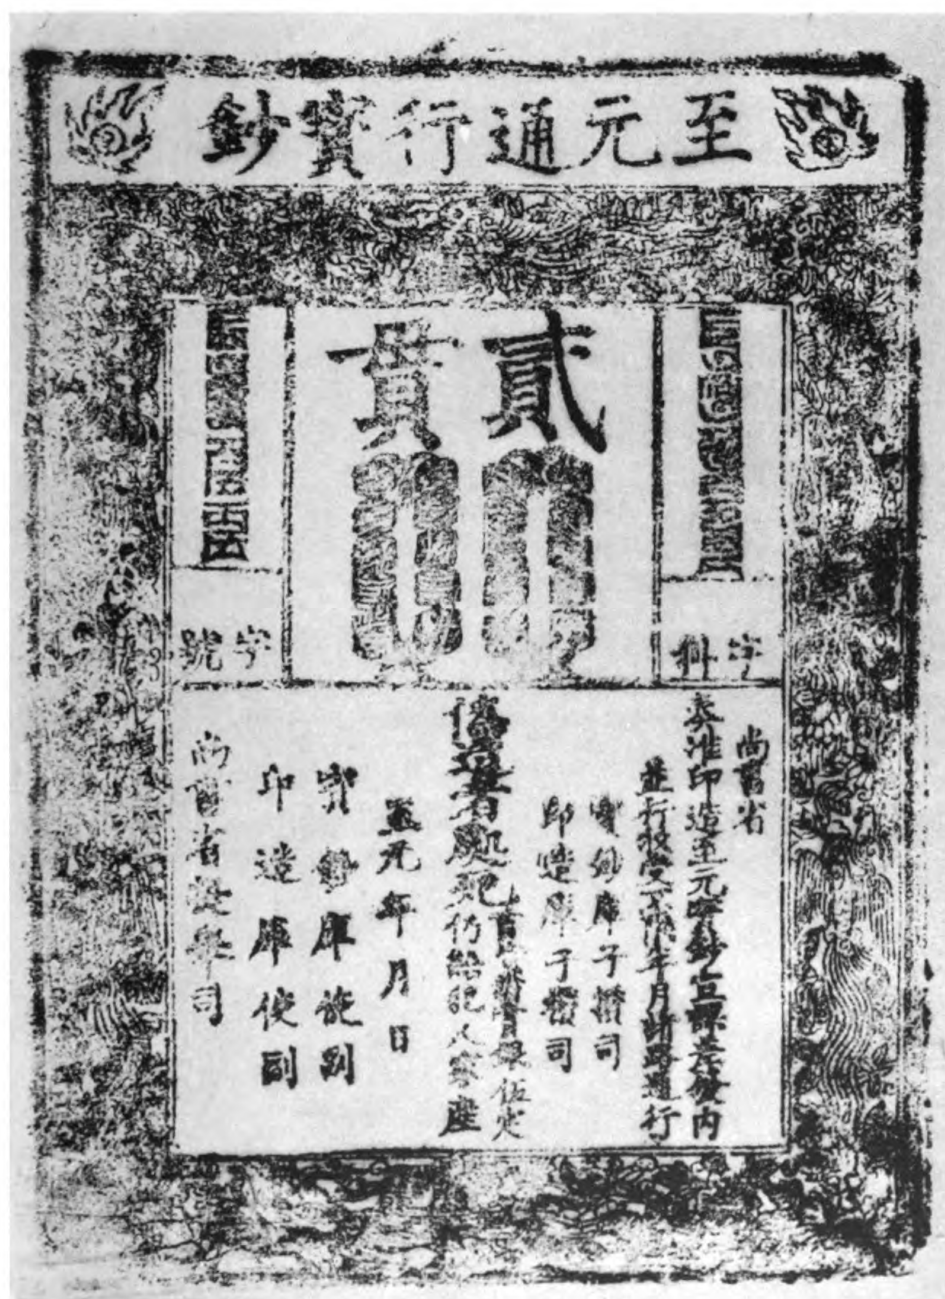 至元通行寳鈔
貳貫
字料
字號
尚書省
奏准印造至元寳鈔宣課差發內
並行收受不限年月諸路通行
寳鈔庫子攢司
印造庫子攢司
偽造者處死
首告者賞銀伍定
仍給犯人家產
至元年月日
寳鈔庫使副
印造庫使副
尚書省提舉司